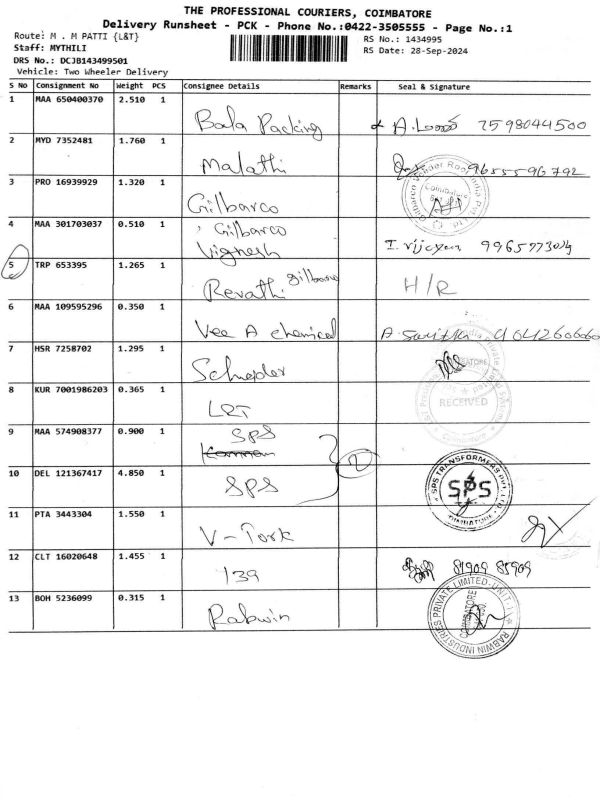 THE PROFESSIONAL COURIERS, COIMBATORE
Delivery Runsheet - PCK - Phone No.:0422-3505555 - Page No.:1
Route: M . M PATTI {L&T}
Staff: MYTHILI
DRS No.: DCJB143499501
Vehicle: Two Wheeler Delivery
RS No.: 1434995
RS Date: 28-Sep-2024
S No Consignment No Weight PCS Consignee Details Remarks Seal & Signature
1 MAA 650400370 2.510 1 Bala Packing 7598044500
2 MYD 7352481 1.760 1 Malathi 9655596792
3 PRO 16939929 1.320 1 Gilbarco
4 MAA 301703037 0.510 1 Gilbarco
Vignesh
5 TRP 653395 1.265 1 Revathi Gilbarco H/R
6 MAA 109595296 0.350 1 Vee A chemical
7 HSR 7258702 1.295 1
8 KUR 7001986203 0.365 1 RECEIVED
9 MAA 574908377 0.900 1 SPS
2
10 DEL 121367417 4.850 1 SPS SPS TRANSFORMERS PVT LTD SPS COIMBATORE
11 PTA 3443304 1.550 1 V-Tork
12 CLT 16020648 1.455 1 139 81909 85909
13 BOH 5236099 0.315 1 Rabwin RABWIN INDUSTRIES PRIVATE LIMITED, UNIT-1 COIMBATORE